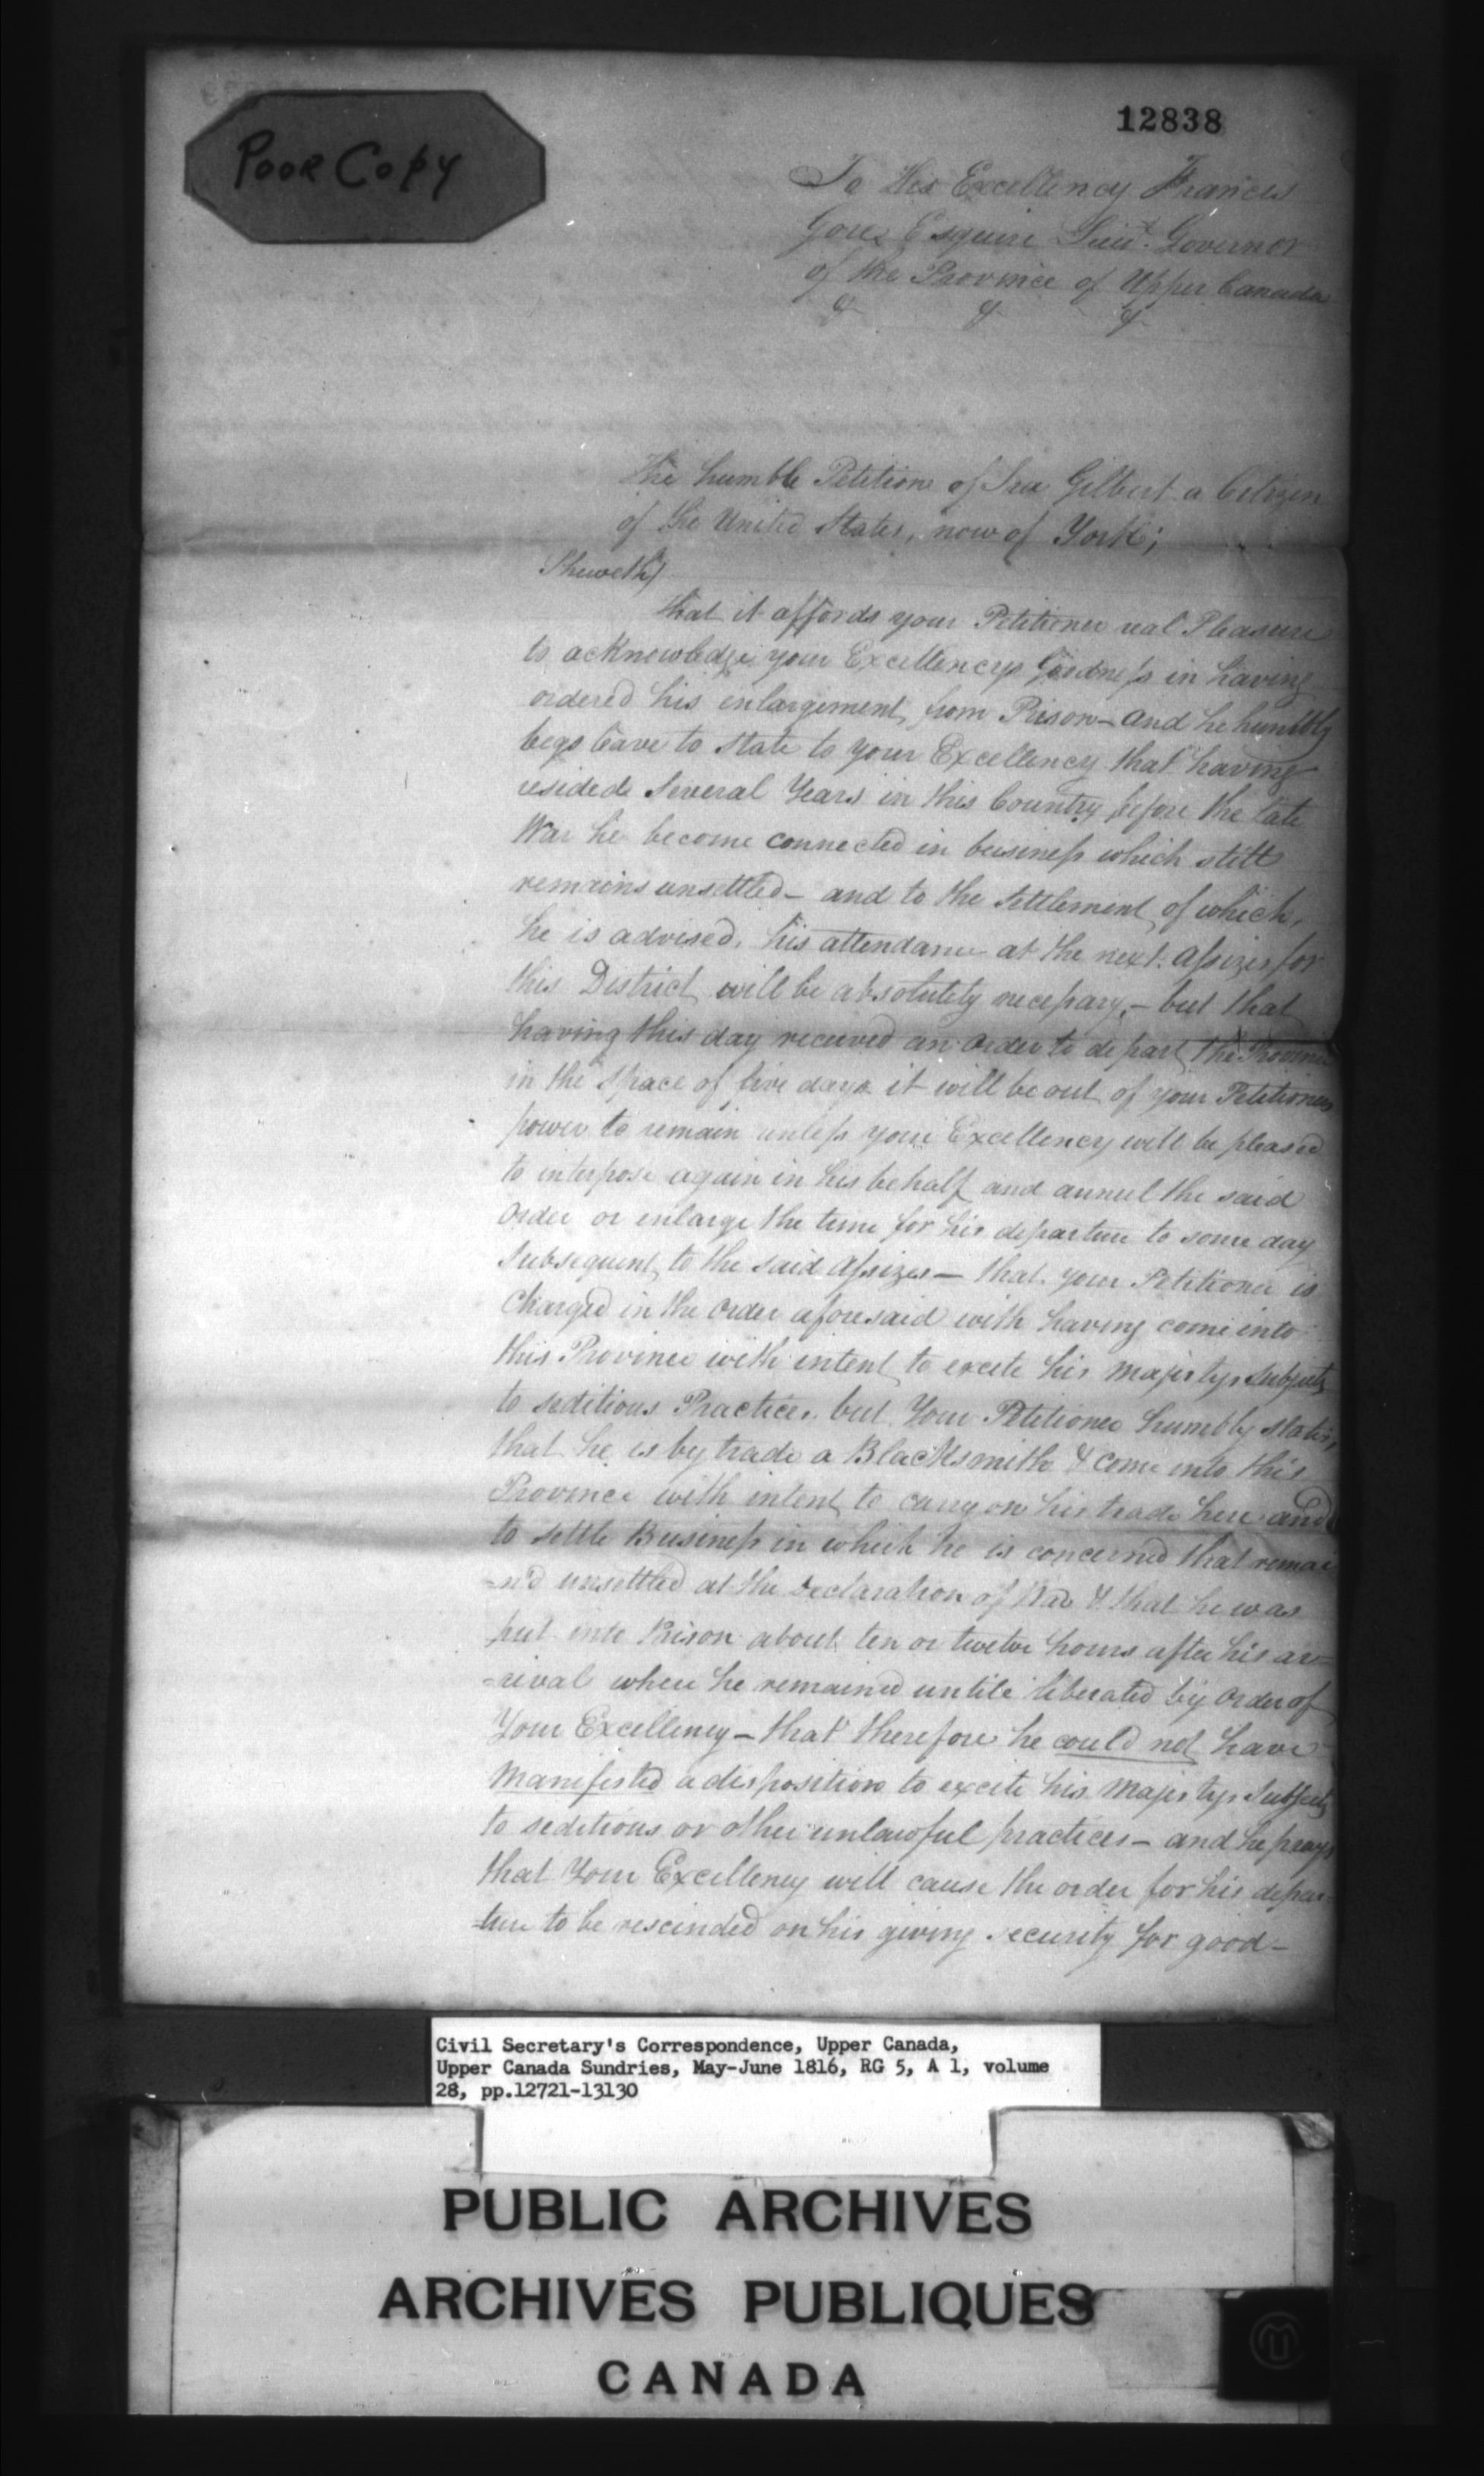 12838
Poor Copy
To His Excellency Francis
Gore Esquire Lieut. Governor
of the Province of Upper Canada
& & &
The humble Petition of Ira Gilbert a Citizen
of the United States, now of York;
Sheweth,
that it affords your Petitioner real Pleasure
to acknowledge your Excellencys Goodness in having
ordered his enlargement from Prison – and he humbly
begs leave to state to your Excellency that having
resided several Years in this Country before the late
War he become connected in business which still
remains unsettled – and to the settlement of which,
he is advised, his attendance at the next Assizes for
this District will be absolutely necessary, – but that
having this day received an order to depart the Province
in the space of five days it will be out of your Petitioners
power to remain unless your Excellency will be pleased
to interpose again in his behalf and annul the said
Order or enlarge the time for his departure to some day
subsequent to the said Assizes – that your Petitioner is
Charged in the order aforesaid with having come into
this Province with intent to excite his Majestys subjects
to seditious Practices, but Your Petitioner humbly states,
that he is by trade a Blacksmith & come into this
Province with intent to carry on his trade here and
to settle Business in which he is concerned that remai
=n'd unsettled at the declaration of War & that he was
put into Prison about ten or twelve hours after his ar=
=rival where he remained untill liberated by order of
Your Excellency – that therefore he could not have
manifested a disposition to excite his Majestys Subjects
to seditious or other unlawful practices – and he prays
that Your Excellency will cause the order for his depar=
=ture to be rescinded on his giving security for good –
Civil Secretary's Correspondence, Upper Canada,
Upper Canada Sundries, May-June 1816, RG 5, A 1, volume
28, pp.12721-13130
PUBLIC ARCHIVES
ARCHIVES PUBLIQUES
CANADA